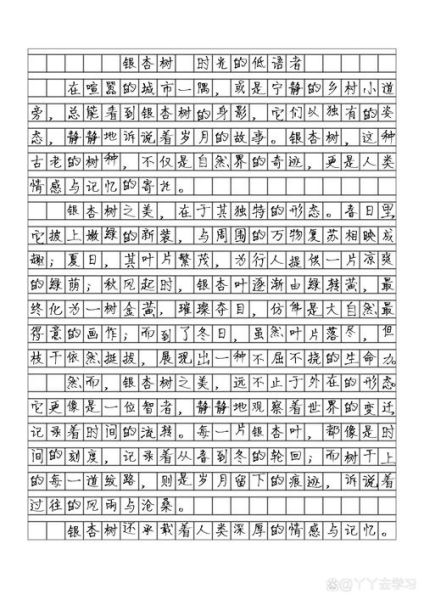 银杏树 时光的低语者
在喧嚣的城市一隅，或是宁静的乡村小道
旁，总能看到银杏树的身影，它们以独有的姿
态，静静地诉说着岁月的故事。银杏树，这种
古老的树种，不仅是自然界的奇迹，更是人类
情感与记忆的寄托。
银杏树之美，在于其独特的形态。春日里，
它披上嫩绿的新装，与周围的万物复苏相映成
趣；夏日，其叶片繁茂，为行人提供一片凉爽
的绿荫；秋风起时，银杏叶逐渐由绿转黄，最
终化为一树金黄，璀璨夺目，仿佛是大自然最
得意的画作；而到了冬日，虽然叶片落尽，但
枝干依然挺拔，展现出一种不屈不挠的生命力。
然而，银杏树之美，远不止于外在的形态。
它更像是一位智者，静静地观察着世界的变迁，
记录着时间的流转。每一片银杏叶，都像是时
间的刻度，记录着从春到冬的轮回；而树干上
的每一道纹路，则是岁月留下的痕迹，诉说着
过往的风雨与沧桑。
银杏树还承载着人类深厚的情感与记忆。
@丫丫去学习